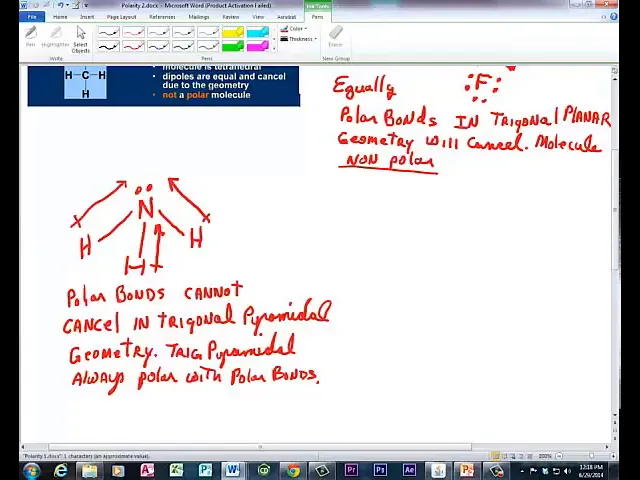 Polarity 2.docx - Microsoft Word (Product Activation Failed)
Ink Tools
File Home Insert Page Layout References Mailings Review View Acrobat Pens
Pen Highlighter Select Objects
Color
Thickness
Eraser
Write Pens New Group
molecule is tetrahedral
dipoles are equal and cancel
due to the geometry
not a polar molecule
H C H
H
Equally
F
Polar Bonds IN Trigonal PLANAR
Geometry will Cancel. Molecule
NON polar
N
H H
H
Polar BONDS CANNOT
CANCEL IN TRIGONAL Pyramidal
Geometry. TRIG Pyramidal
Always polar with Polar BONDS.
"Polarity 1.docx": 1 characters (an approximate value).
200%
12:18 PM
6/29/2014